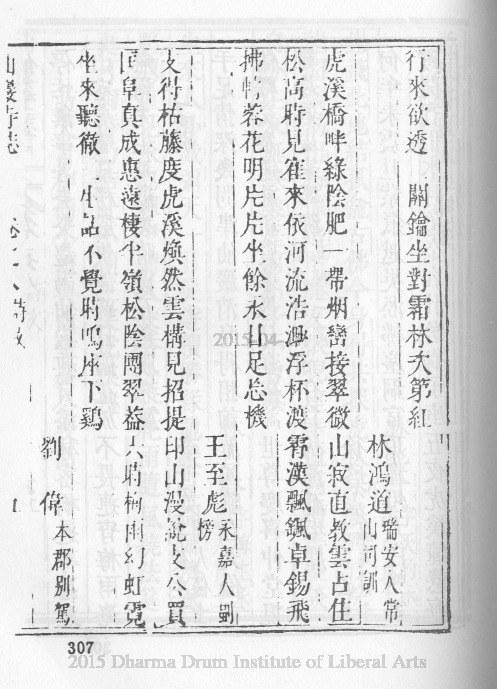 行來欲透一關鑰坐對霜林次第紅
林鴻道 瑞安人常山司訓
虎溪橋畔綠陰肥一帶烟巒接翠微山寂直教雲占住
松高時見寉來依河流浩渺浮杯渡霄漢飄颻卓錫飛
拂幘蓉花明片片坐餘永日足忘機
王至彪 永嘉人副榜
支得枯藤度虎溪煥然雲構見招提印山漫說支公買
阜真成惠遠棲半嶺松陰團翠葢六時梅雨幻虹霓
坐來聽徹生話不覺時鳴座下鷄
劉偉 本郡別駕
寺志
307
2015-04-
2015 Dharma Drum Institute of Liberal Arts